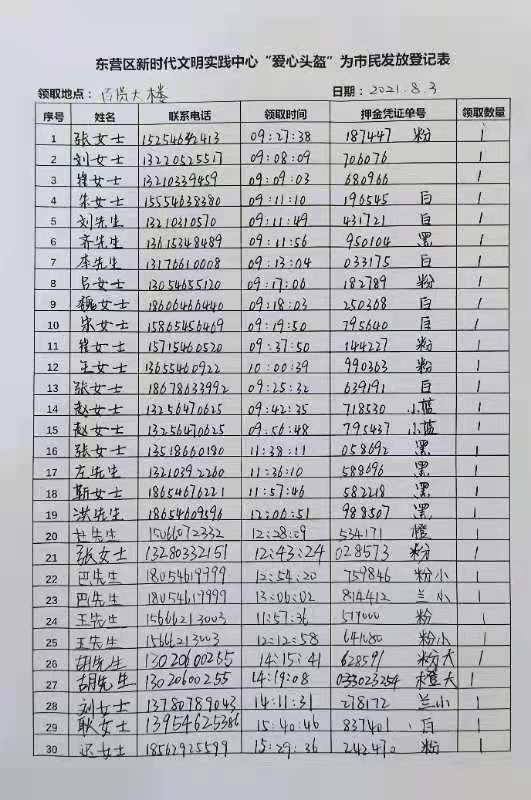 东营区新时代文明实践中心“爱心头盔”为市民发放登记表
领取地点： 百货大楼 日期：2021.8.3
序号 姓名 联系电话 领取时间 押金凭证单号 领取数量
1 张女士 15254642413 09:27:38 187447 粉 1
2 刘女士 13220525517 09:08:09 706076 1
3 徐女士 13210339459 09:09:03 680966 1
4 朱女士 15554638380 09:11:10 196545 白 1
5 刘先生 13210310570 09:11:49 431721 白 1
6 齐先生 13615348489 09:11:56 950104 黑 1
7 李先生 13176610008 09:13:04 033175 白 1
8 吕女士 13054655120 09:17:06 182789 粉 1
9 魏女士 18606466440 09:18:03 250368 白 1
10 宋女士 15865456469 09:19:50 795640 白 1
11 徐女士 15715460520 09:37:50 144227 粉 1
12 王女士 13655460922 10:00:39 990363 粉 1
13 张女士 18678633992 09:25:32 639191 白 1
14 赵女士 13256470625 09:42:35 718530 小蓝 1
15 赵女士 13256470625 09:56:48 795437 小蓝 1
16 张女士 13518660180 11:38:11 058692 黑 1
17 左先生 13210392260 11:36:10 588696 黑 1
18 靳女士 18654676221 11:57:46 582218 黑 1
19 洪先生 18654609596 12:06:51 988507 黑 1
20 杜先生 15066072332 12:28:09 534171 橙 1
21 张女士 13280332151 12:43:24 028573 粉 1
22 巴先生 18054619999 12:54:20 759846 粉小 1
23 巴先生 18054619999 13:06:02 814412 兰小 1
24 王先生 1566213003 11:57:36 粉 1
25 王先生 1566213003 12:12:58 641080 粉小 1
26 胡先生 13020600255 14:15:41 628591 粉大 1
27 胡先生 13020600255 14:19:08 033023254 橙大 1
28 刘女士 13780789043 14:11:31 278172 兰小 1
29 耿女士 13954625386 15:40:46 837401 白 1
30 迟女士 18562925599 15:29:36 242470 粉 1